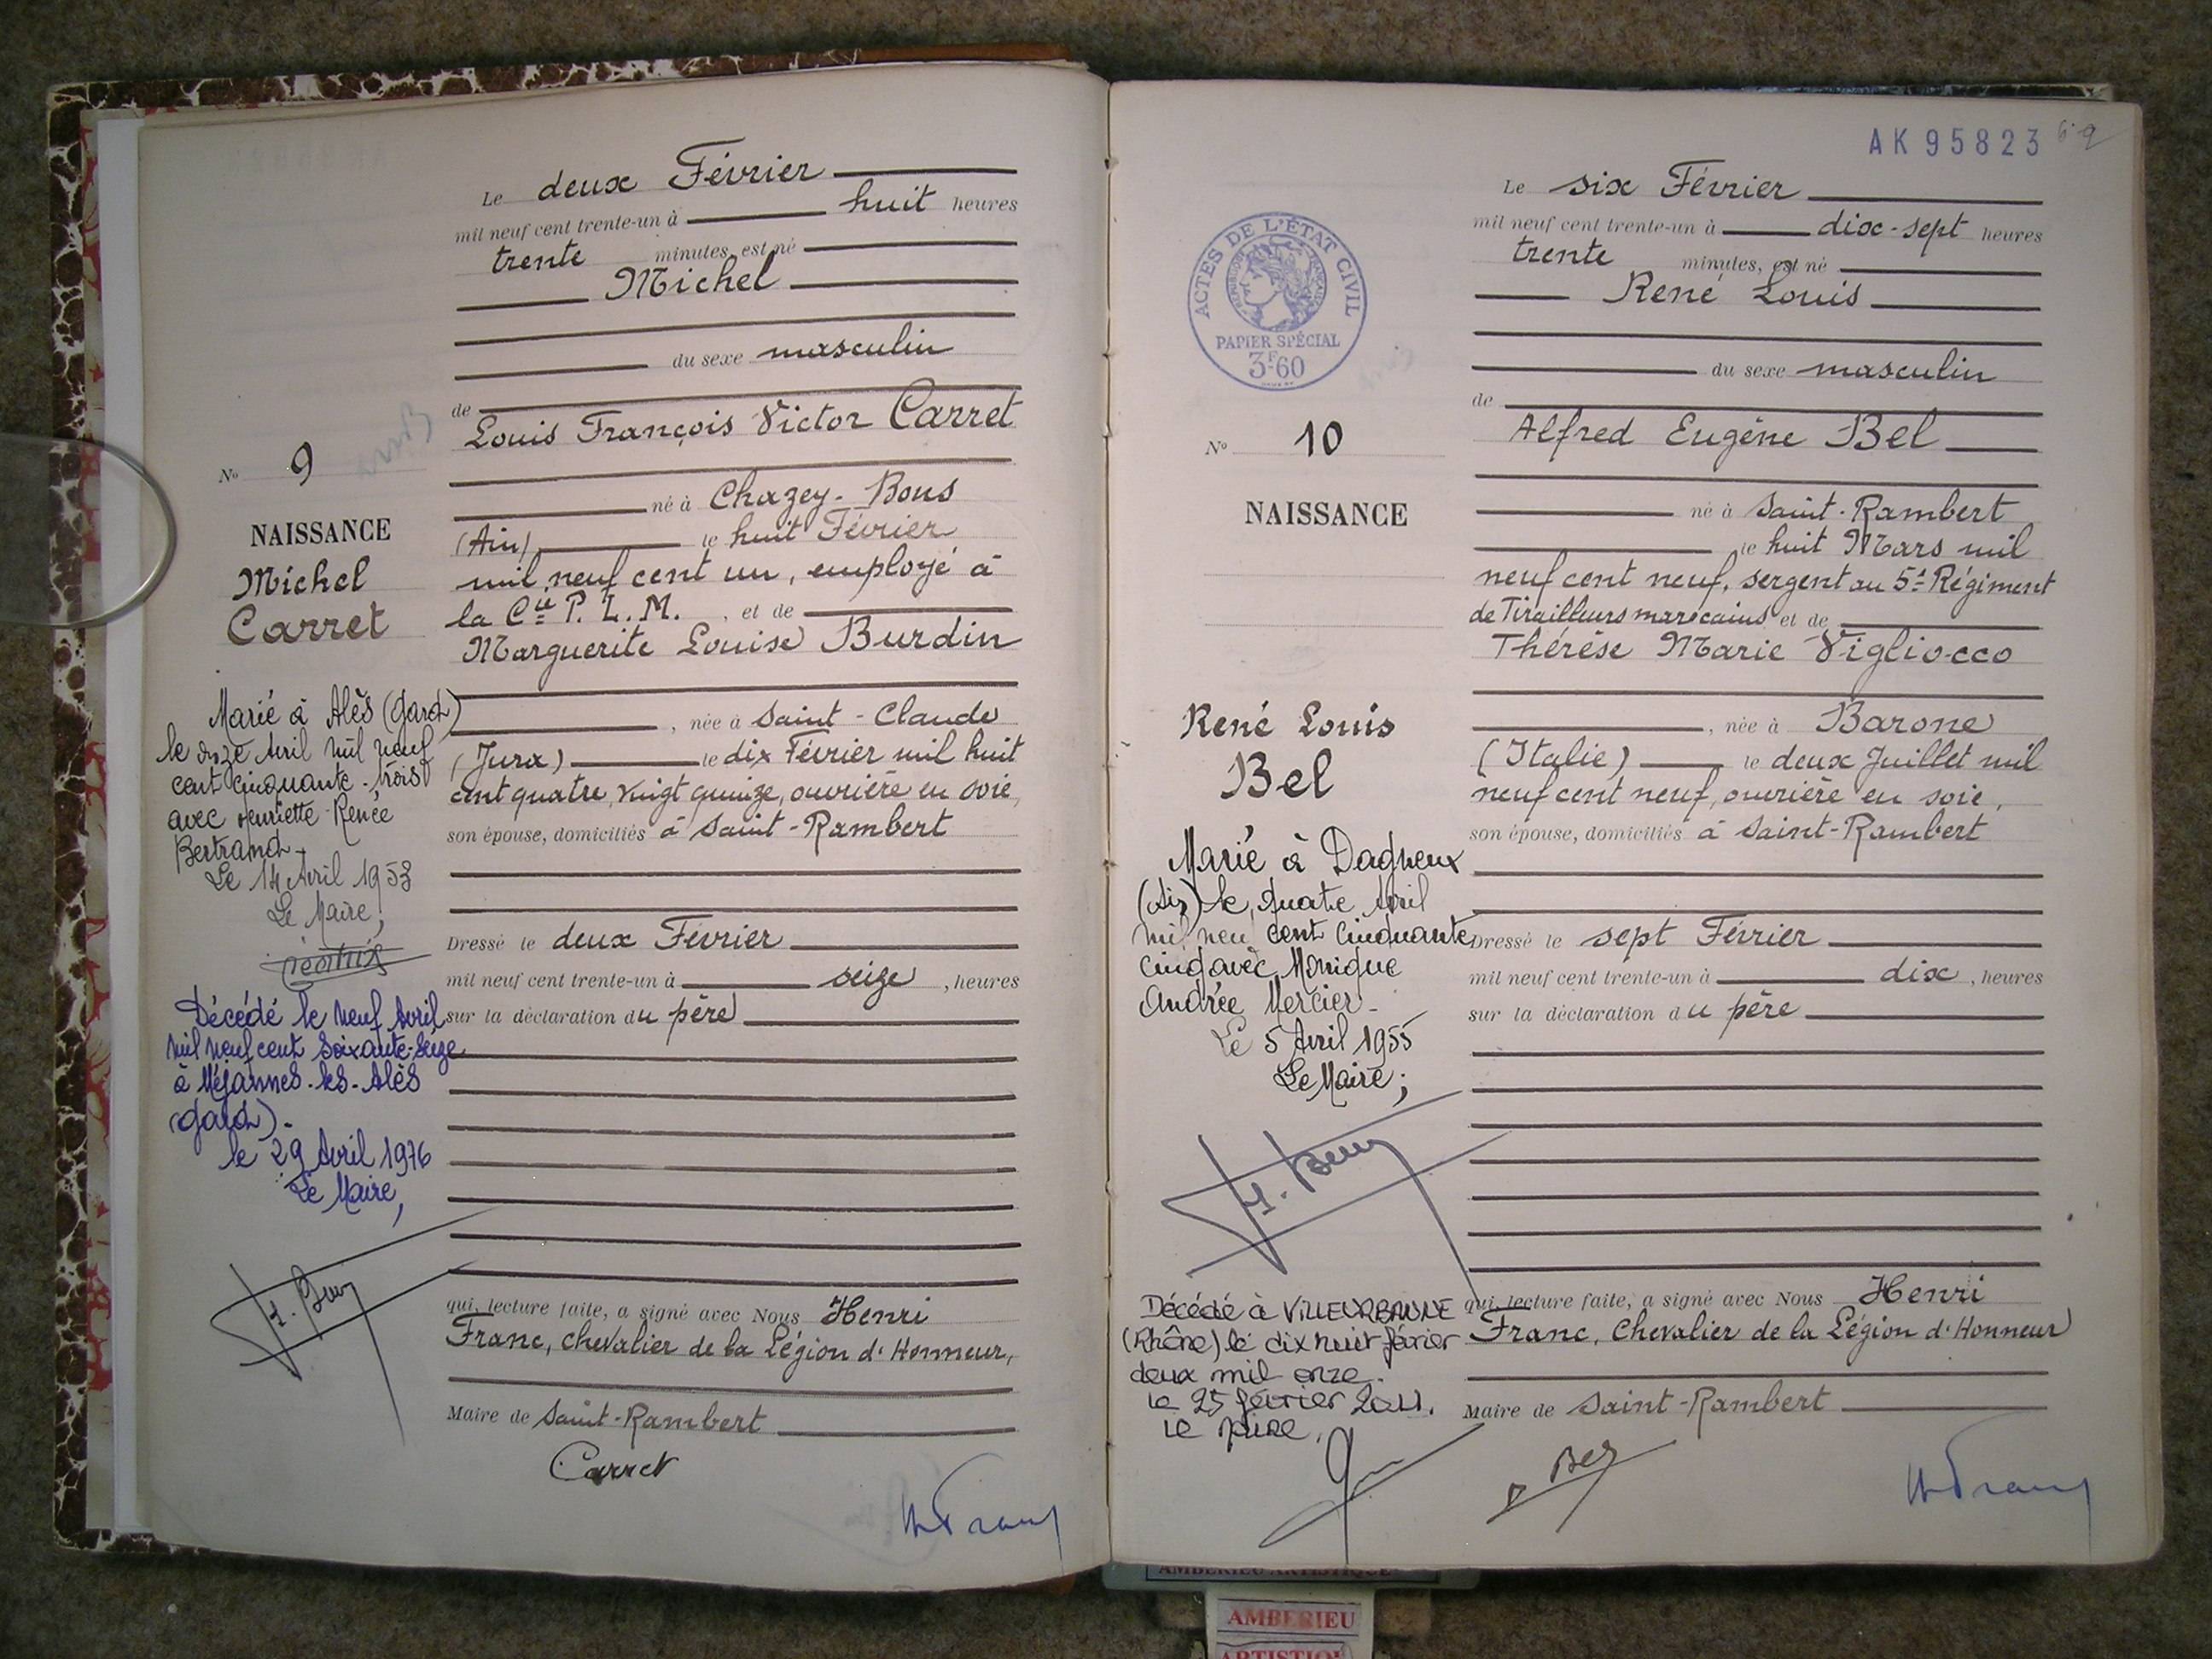 Le deux Février
mil neuf cent trente-un à huit heures
trente minutes, est né
Michel
du sexe masculin
de
Louis François Victor Carret
né à Chazey-Bons
(Ain) le huit Février
mil neuf cent un, employé à
la Cie P. L. M. , et de
Marguerite Louise Burdin
, née à Saint-Claude
(Jura) le dix Février mil huit
cent quatre, vingt quinze, ouvrière en soie,
son épouse, domiciliés à Saint-Rambert
Dressé le deux Février
mil neuf cent trente-un à seize , heures
sur la déclaration du père
qui, lecture faite, a signé avec Nous Henri
Franc, Chevalier de la Légion d'Honneur,
Maire de Saint-Rambert
Carret
No 9
NAISSANCE
Michel
Carret
Marié à Alès (Gard)
le onze Avril mil neuf
cent cinquante-trois
avec Henriette-Renée
Bertrand.
Le 14 Avril 1953
Le Maire,
Décédé le neuf Avril
mil neuf cent soixante-seize
à Méjannes-les-Alès
(Gard).
le 29 Avril 1976
Le Maire,
AK95823
Le six Février
mil neuf cent trente-un à dix-sept heures
trente minutes, est né
René Louis
du sexe masculin
de
Alfred Eugène Bel
né à Saint-Rambert
le huit Mars mil
neuf cent neuf, sergent au 5e Régiment
de Tirailleurs marocains et de
Thérèse Marie Vigliocco
, née à Barone
(Italie) le deux Juillet mil
neuf cent neuf, ouvrière en soie,
son épouse, domiciliés à Saint-Rambert
Dressé le sept Février
mil neuf cent trente-un à dix , heures
sur la déclaration du père
qui, lecture faite, a signé avec Nous Henri
Franc, Chevalier de la Légion d'Honneur
Maire de Saint-Rambert
Bel
ACTES DE L'ÉTAT CIVIL
RÉPUBLIQUE FRANÇAISE
PAPIER SPÉCIAL
3F60
No 10
NAISSANCE
René Louis
Bel
Marié à Dagneux
(Ain) le quatre Avril
mil neuf cent cinquante
cinq avec Monique
Andrée Mercier.
Le 5 Avril 1955
Le Maire;
Décédé à VILLEURBANNE
(Rhône) le dix huit février
deux mil onze.
Le 25 février 2011.
Le Maire,
AMBERIEU ARTISTIQUE
AMBERIEU
ARTISTIQUE